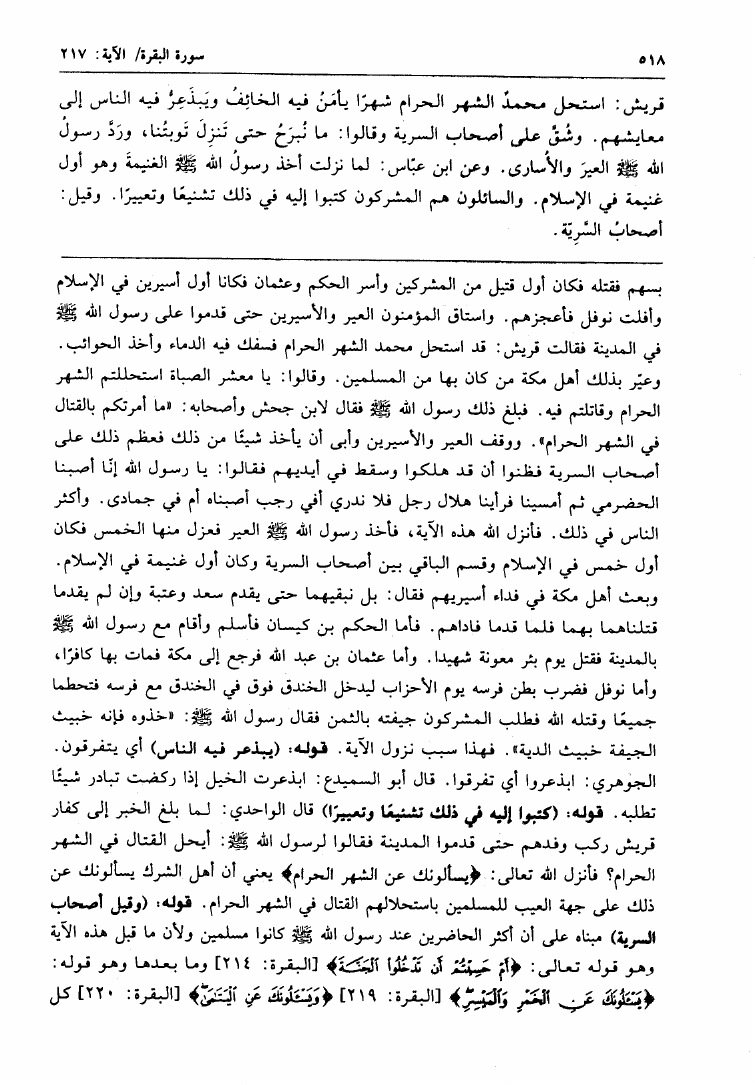 ٥١٨
سورة البقرة/ الآية: ٢١٧
قريش: استحل محمدٌ الشهر الحرام شهرًا يأمَنُ فيه الخائِفُ ويَبذَعِرُّ فيه الناس إلى
معايشهم. وشُقّ على أصحاب السرية وقالوا: ما نُبرَحُ حتى تَنزِلَ تَوبتُنا، ورَدَّ رسولُ
الله ﷺ العيرَ والأُسارى. وعن ابن عبّاس: لما نزلت أخذ رسولُ الله ﷺ الغنيمةَ وهو أول
غنيمة في الإسلام. والسائلون هم المشركون كتبوا إليه في ذلك تشنيعًا وتعييرًا. وقيل:
أصحابُ السَّرِيّة.
بسهم فقتله فكان أول قتيل من المشركين وأسر الحكم وعثمان فكانا أول أسيرين في الإسلام
وأفلت نوفل فأعجزهم. واستاق المؤمنون العير والأسيرين حتى قدموا على رسول الله ﷺ
في المدينة فقالت قريش: قد استحل محمد الشهر الحرام فسفك فيه الدماء وأخذ الحوائب.
وعيّر بذلك أهل مكة من كان بها من المسلمين. وقالوا: يا معشر الصباة استحللتم الشهر
الحرام وقاتلتم فيه. فبلغ ذلك رسول الله ﷺ فقال لابن جحش وأصحابه: «ما أمرتكم بالقتال
في الشهر الحرام». ووقف العير والأسيرين وأبى أن يأخذ شيئًا من ذلك فعظم ذلك على
أصحاب السرية فظنوا أن قد هلكوا وسقط في أيديهم فقالوا: يا رسول الله إنّا أصبنا
الحضرمي ثم أمسينا فرأينا هلال رجل فلا ندري أفي رجب أصبناه أم في جمادى. وأكثر
الناس في ذلك. فأنزل الله هذه الآية، فأخذ رسول الله ﷺ العير فعزل منها الخمس فكان
أول خمس في الإسلام وقسم الباقي بين أصحاب السرية وكان أول غنيمة في الإسلام.
وبعث أهل مكة في فداء أسيريهم فقال: بل نبقيهما حتى يقدم سعد وعتبة وإن لم يقدما
قتلناهما بهما فلما قدما فاداهم. فأما الحكم بن كيسان فأسلم وأقام مع رسول الله ﷺ
بالمدينة فقتل يوم بئر معونة شهيدا. وأما عثمان بن عبد الله فرجع إلى مكة فمات بها كافرًا،
وأما نوفل فضرب بطن فرسه يوم الأحزاب ليدخل الخندق فوق في الخندق مع فرسه فتحطما
جميعًا وقتله الله فطلب المشركون جيفته بالثمن فقال رسول الله ﷺ: «خذوه فإنه خبيث
الجيفة خبيث الدية». فهذا سبب نزول الآية. قوله: (يبذعر فيه الناس) أي يتفرقون.
الجوهري: ابذعروا أي تفرقوا. قال أبو السميدع: ابذعرت الخيل إذا ركضت تبادر شيئًا
تطلبه. قوله: (كتبوا إليه في ذلك تشنيعًا وتعييرًا) قال الواحدي: لما بلغ الخبر إلى كفار
قريش ركب وفدهم حتى قدموا المدينة فقالوا لرسول الله ﷺ: أيحل القتال في الشهر
الحرام؟ فأنزل الله تعالى: ﴿يسألونك عن الشهر الحرام﴾ يعني أن أهل الشرك يسألونك عن
ذلك على جهة العيب للمسلمين باستحلالهم القتال في الشهر الحرام. قوله: (وقيل أصحاب
السرية) مبناه على أن أكثر الحاضرين عند رسول الله ﷺ كانوا مسلمين ولأن ما قبل هذه الآية
وهو قوله تعالى: ﴿أَمْ حَسِبْتُمْ أَن تَدْخُلُوا الْجَنَّةَ﴾ [البقرة: ٢١٤] وما بعدها وهو قوله:
﴿يَسْـَٔلُونَكَ عَنِ الْخَمْرِ وَالْمَيْسِرِ﴾ [البقرة: ٢١٩] ﴿وَيَسْـَٔلُونَكَ عَنِ الْيَتَامَىٰ﴾ [البقرة: ٢٢٠] كل